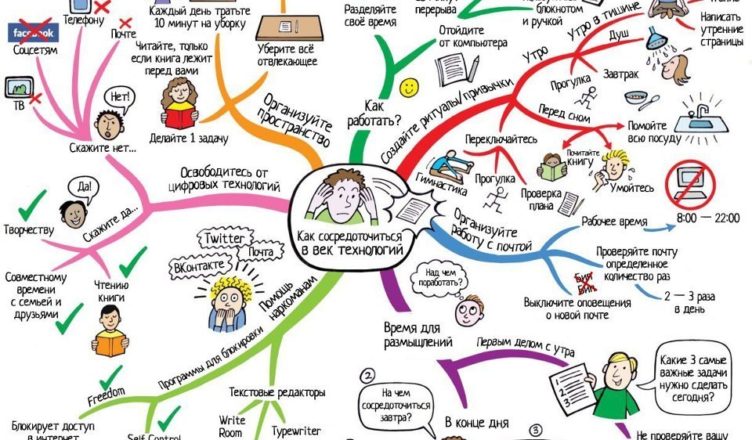 Телефону
facebook
Соцсетям
Почте
ТВ
Нет!
Скажите нет...
Каждый день тратьте
10 минут на уборку
Читайте, только
если книга лежит
перед вами
Уберите всё
отвлекающее
Делайте 1 задачу
Организуйте
пространство
Освободитесь от
цифровых технологий
Да!
Скажите да...
Творчеству
Совместному
времени
с семьей и
друзьями
Чтению
книги
Разделяйте
своё время
перерыва
Отойдите
от компьютера
блокнотом
и ручкой
Как
работать?
Создайте ритуалы/привычки
Утро
Утро в тишине
Написать
утренние
страницы
Душ
Завтрак
Прогулка
Перед сном
Помойте
всю посуду
Почитайте
книгу
Умойтесь
Проверка
плана
Переключайтесь
Прогулка
Гимнастика
Как сосредоточиться
в век технологий
Организуйте
работу с почтой
Рабочее время
8:00 — 22:00
Проверяйте почту
определенное
количество раз
2 — 3 раза
в день
Выключите оповещения
о новой почте
Twitter
Почта
ВКонтакте
Помощь
наркоманам
Программы для блокировки
Freedom
Блокирует доступ
в интернет
Self Control
Текстовые редакторы
Write
Room
Typewriter
Над чем
поработать?
Время для
размышлений
Первым делом с утра
Какие 3 самые
важные задачи
нужно сделать
сегодня?
1
2
3
2
На чем
сосредоточиться
завтра?
В конце дня
3
Не проверяйте вашу